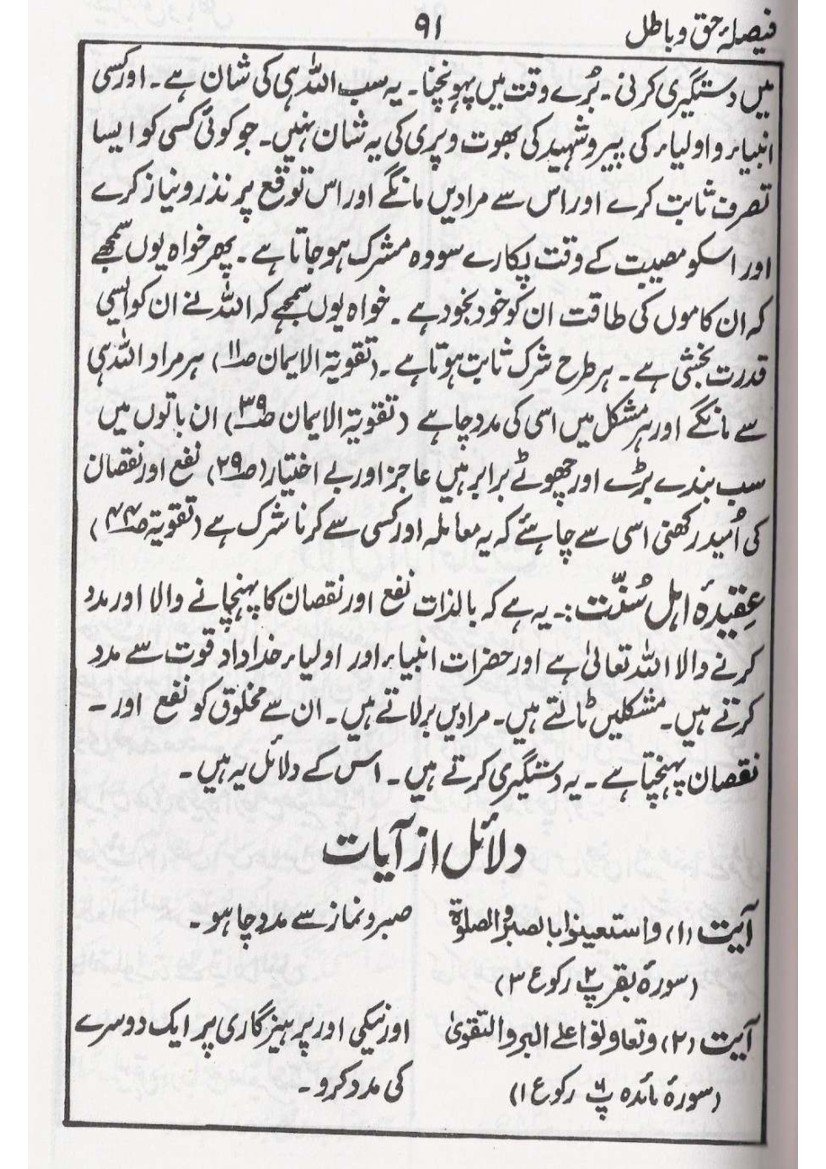 فیصلۂ حق و باطل
۹۱
میں دستگیری کرنی۔ بُرے وقت میں پہونچنا۔ یہ سب اللہ ہی کی شان ہے۔ اور کسی
انبیاء و اولیاء کی پیر و شہید کی بھوت و پری کی یہ شان نہیں۔ جو کوئی کسی کو ایسا
تصرف ثابت کرے اور اس سے مرادیں مانگے اور اس توقع پر نذر و نیاز کرے
اور اسکو مصیبت کے وقت پکارے سو وہ مشرک ہو جاتا ہے۔ پھر خواہ یوں سمجھے
کہ ان کاموں کی طاقت ان کو خود بخود ہے۔ خواہ یوں سمجھے کہ اللہ نے ان کو ایسی
قدرت بخشی ہے۔ ہر طرح شرک ثابت ہوتا ہے۔ (تقویۃ الایمان صـ۱۱) ہر مراد اللہ ہی
سے مانگے اور ہر مشکل میں اسی کی مدد چاہے (تقویۃ الایمان صـ۳۹) ان باتوں میں
سب بندے بڑے اور چھوٹے برابر ہیں عاجز اور بے اختیار (صـ۲۹) نفع اور نقصان
کی اُمید رکھنی اسی سے چاہئے کہ یہ معاملہ اور کسی سے کرنا شرک ہے (تقویۃ صـ۴۴)
عقیدۂ اہل سُنّت:۔ یہ ہے کہ بالذات نفع اور نقصان کا پہنچانے والا اور مدد
کرنے والا اللہ تعالیٰ ہے اور حضرات انبیاء اور اولیاء خداداد قوت سے مدد
کرتے ہیں۔ مشکلیں ٹالتے ہیں۔ مرادیں بر لاتے ہیں۔ ان سے مخلوق کو نفع اور ۔
نقصان پہنچتا ہے۔ یہ دستگیری کرتے ہیں۔ اس کے دلائل یہ ہیں۔
دلائل از آیات
آیت (۱) واستعینوا بالصبر والصلوۃ
(سورۂ بقر پ۲ رکوع ۳)
صبر و نماز سے مدد چاہو۔
آیت (۲) وتعاونوا علی البر والتقویٰ
(سورۂ مائدہ پ۶ رکوع ۱)
اور نیکی اور پرہیزگاری پر ایک دوسرے
کی مدد کرو۔